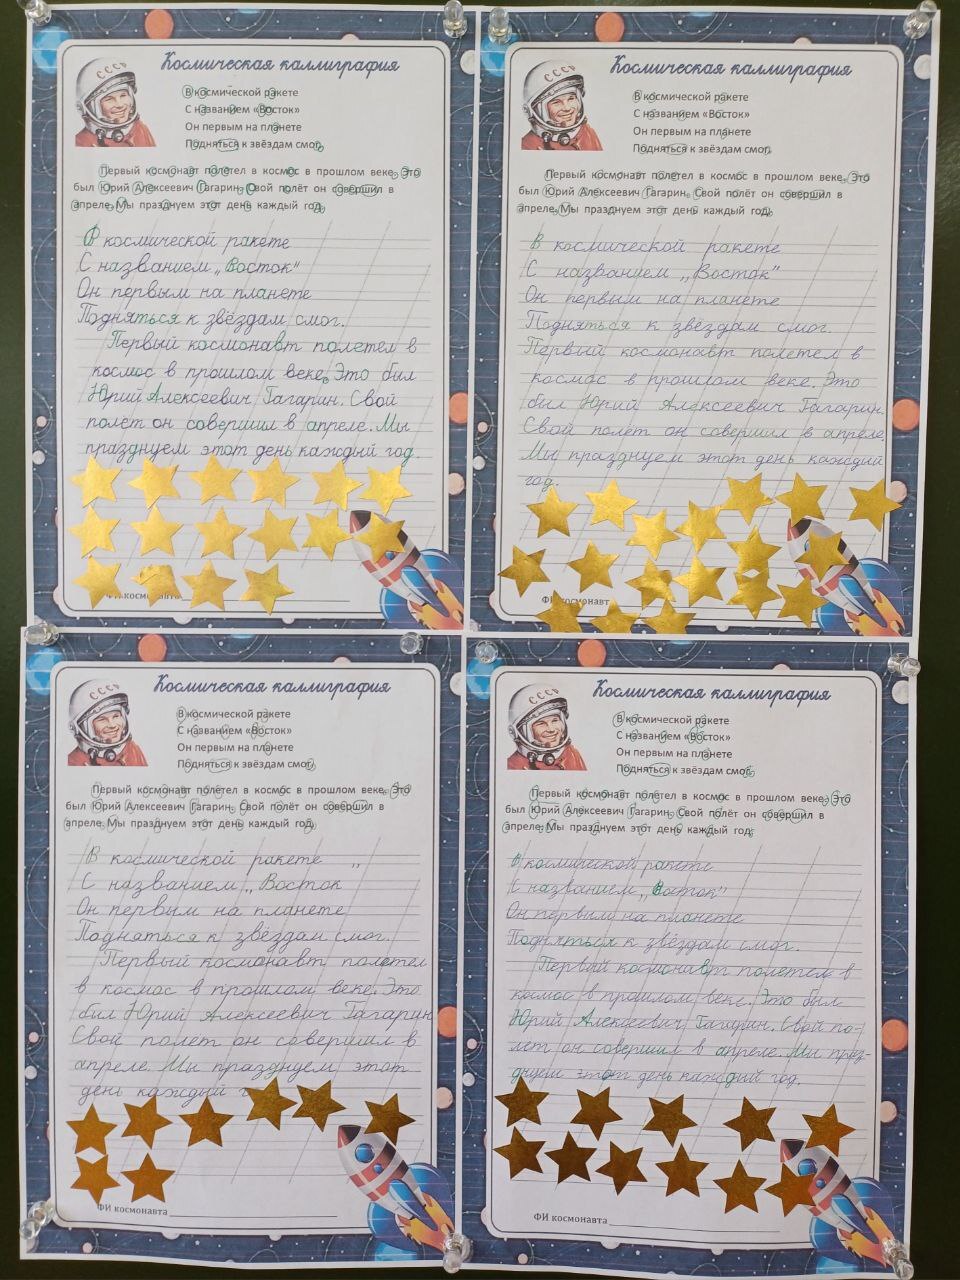 Космическая каллиграфия
СССР
В космической ракете
С названием «Восток»
Он первым на планете
Подняться к звёздам смог.
Первый космонавт полетел в космос в прошлом веке. Это
был Юрий Алексеевич Гагарин. Свой полёт он совершил в
апреле. Мы празднуем этот день каждый год.
В космической ракете
С названием „Восток“
Он первым на планете
Подняться к звёздам смог.
Первый космонавт полетел в
космос в прошлом веке. Это был
Юрий Алексеевич Гагарин. Свой
полёт он совершил в апреле. Мы
празднуем этот день каждый год.
ФИ космонавта
Космическая каллиграфия
СССР
В космической ракете
С названием «Восток»
Он первым на планете
Подняться к звёздам смог.
Первый космонавт полетел в космос в прошлом веке. Это
был Юрий Алексеевич Гагарин. Свой полёт он совершил в
апреле. Мы празднуем этот день каждый год.
В космической ракете
С названием „Восток“
Он первым на планете
Подняться к звёздам смог.
Первый космонавт полетел в
космос в прошлом веке. Это
был Юрий Алексеевич Гагарин.
Свой полёт он совершил в апреле.
Мы празднуем этот день каждый
год.
ФИ космонавта
Космическая каллиграфия
СССР
В космической ракете
С названием «Восток»
Он первым на планете
Подняться к звёздам смог.
Первый космонавт полетел в космос в прошлом веке. Это
был Юрий Алексеевич Гагарин. Свой полёт он совершил в
апреле. Мы празднуем этот день каждый год.
В космической ракете „
С названием „Восток
Он первым на планете
Подняться к звёздам смог.
Первый космонавт полетел
в космос в прошлом веке. Это
был Юрий Алексеевич Гагарин
Свой полёт он совершил в
апреле. Мы празднуем этот
день каждый
ФИ космонавта
Космическая каллиграфия
СССР
В космической ракете
С названием «Восток»
Он первым на планете
Подняться к звёздам смог.
Первый космонавт полетел в космос в прошлом веке. Это
был Юрий Алексеевич Гагарин. Свой полёт он совершил в
апреле. Мы празднуем этот день каждый год.
В космической ракете
С названием „Восток“
Он первым на планете
Подняться к звёздам смог.
Первый космонавт полетел в
космос в прошлом веке. Это был
Юрий Алексеевич Гагарин. Свой по-
лёт он совершил в апреле. Мы праз-
днуем этот день каждый год.
ФИ космонавта